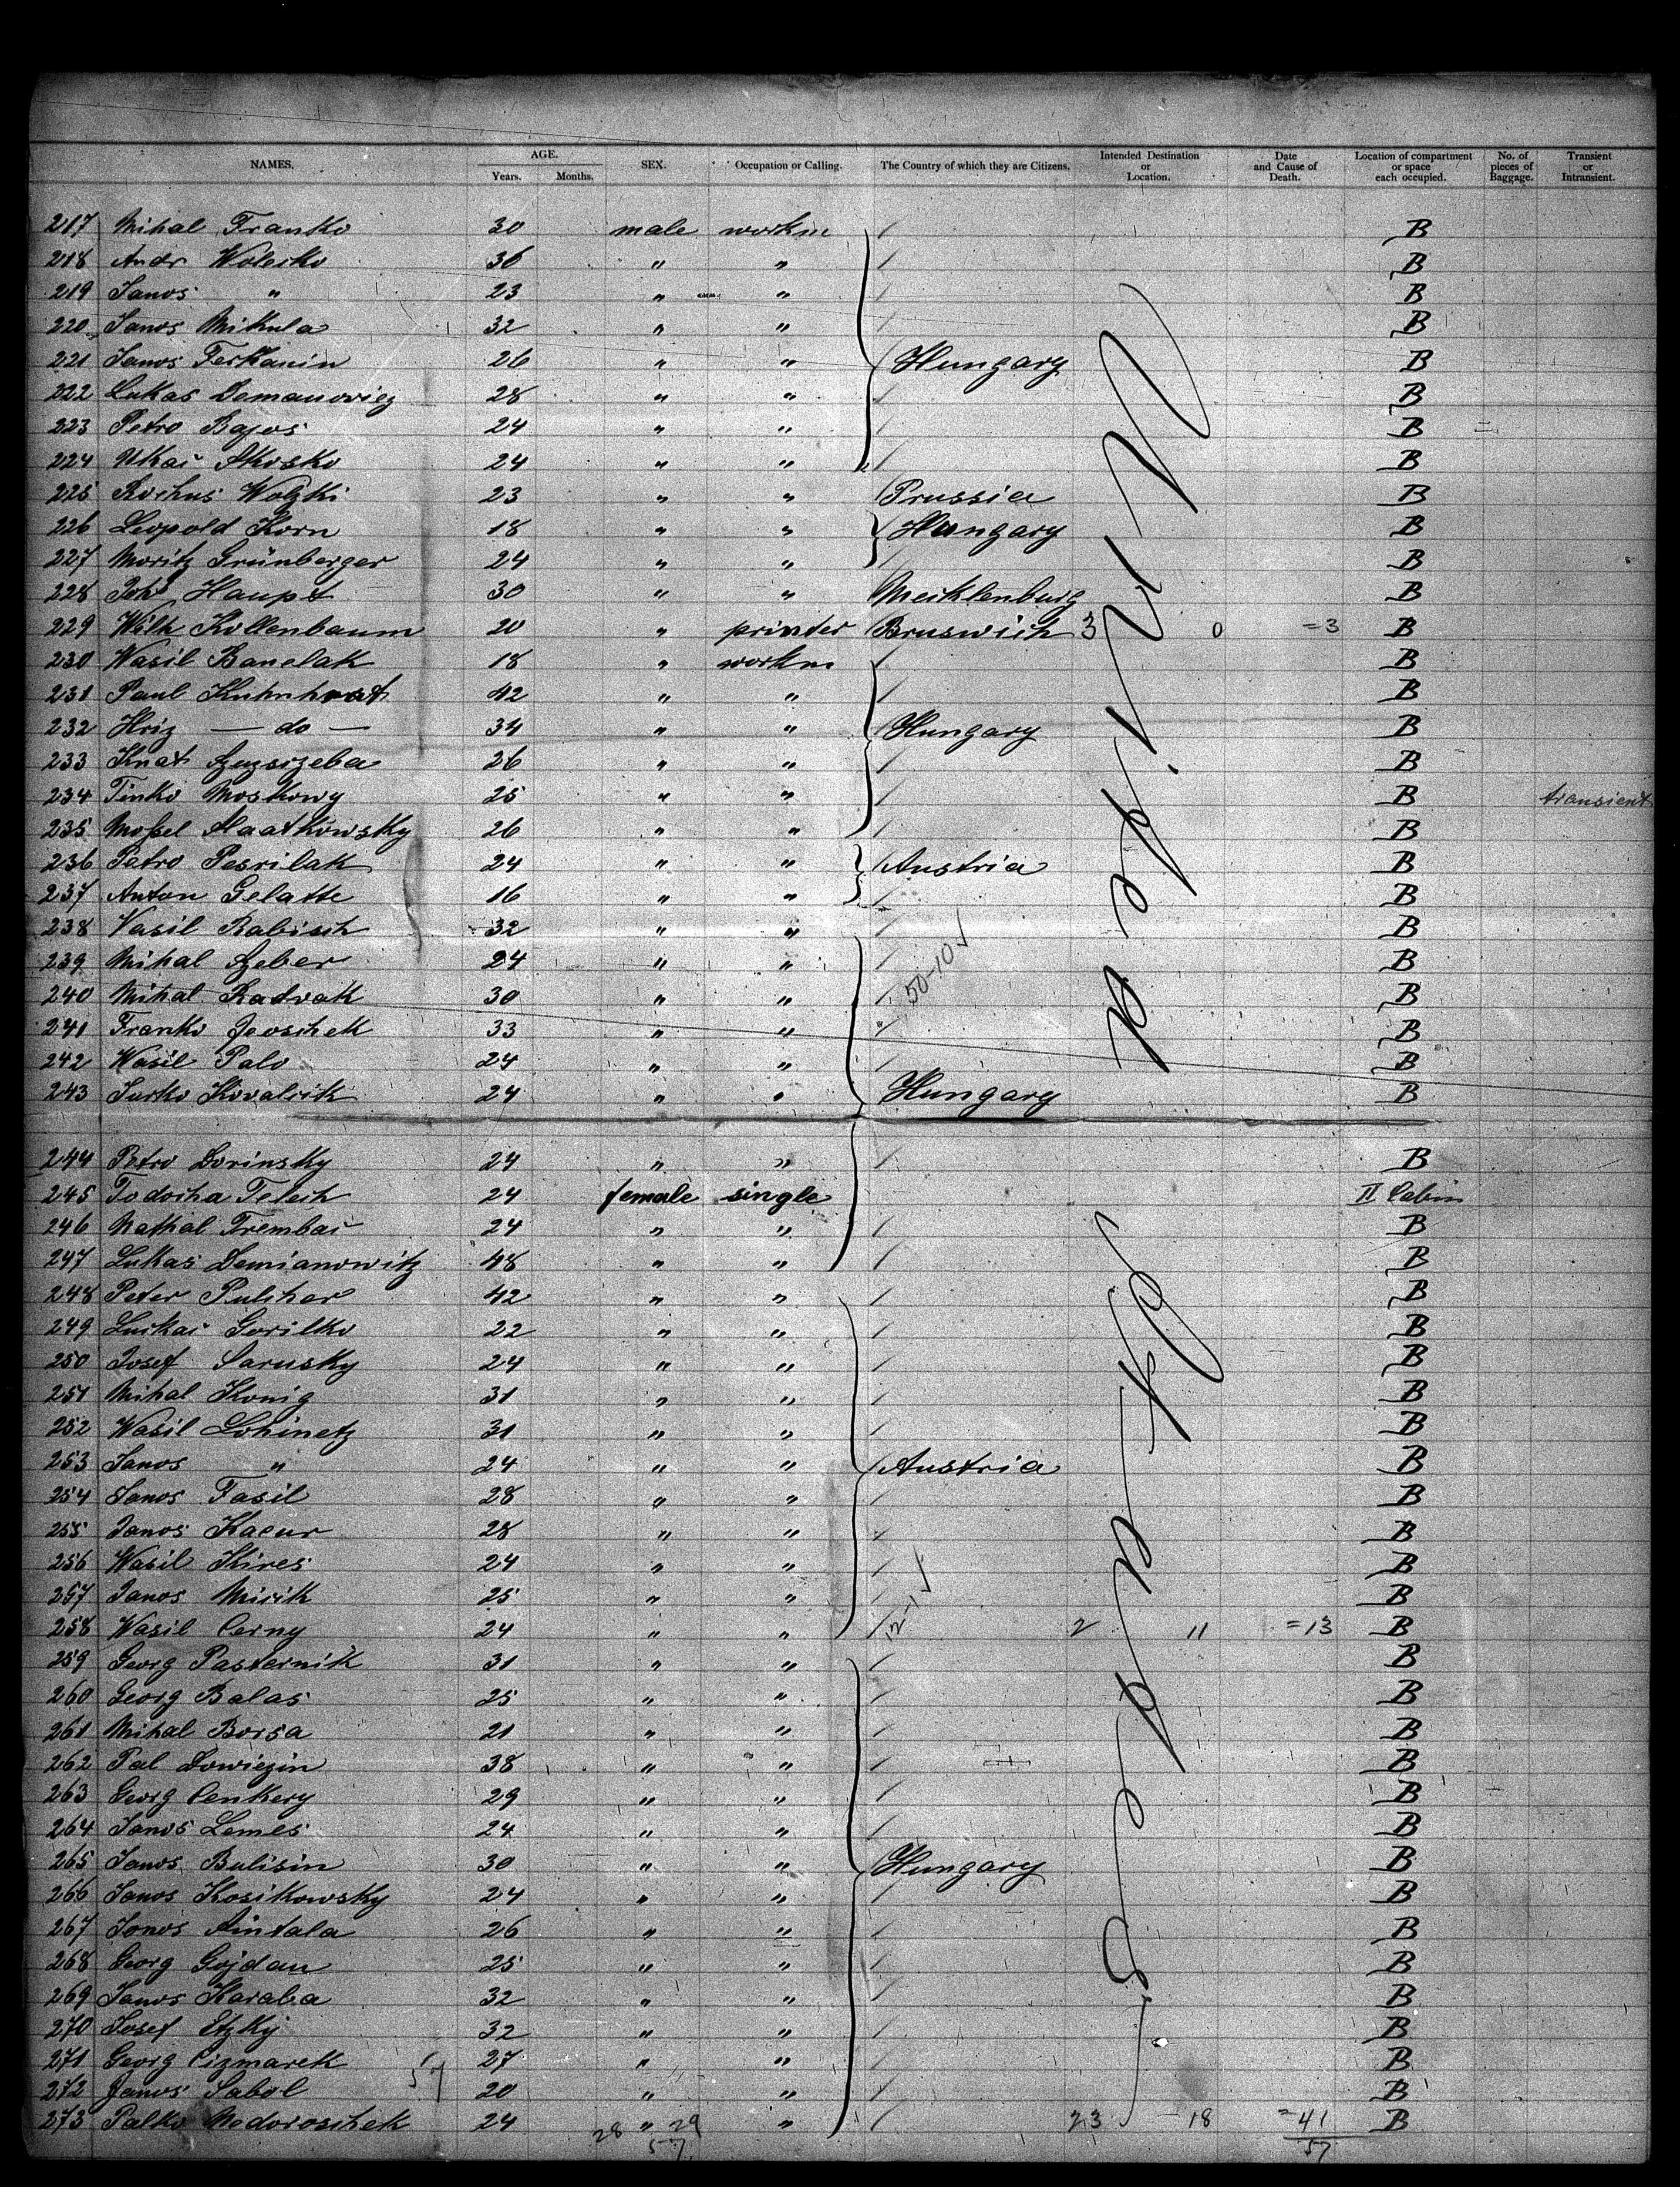 NAMES. AGE. SEX. Occupation or Calling. The Country of which they are Citizens. Intended Destination or Location. Date and Cause of Death. Location of compartment or space each occupied. No. of pieces of Baggage. Transient or Intransient.
Years. Months.
217 Mihal Franko 30 male workm / B
218 Andr Wolesko 36 " " / B
219 Janos " 23 " " / B
220 Janos Mikula 32 " " / B
221 Janos Ferkanin 26 " " / Hungary B
222 Lukas Demanowicz 28 " " / B
223 Petro Bajos 24 " " / B
224 24 " " / B
225 Rochus Wolzki 23 " " / Prussia B
226 Leopold Korn 18 " " / Hungary B
227 Moritz Grünberger 24 " " / B
228 Joh Haupt 30 " " / Mecklenburg B
229 Wilh Kollenbaum 20 " printer / Bruswich 3 0 =3 B
230 Wasil Banelak 18 " workm / B
231 Paul 42 " " / B
232 Hriz — do — 34 " " / Hungary B
233 26 " " / B
234 Timko Moskowy 25 " " / B transient
235 26 " " / B
236 Petro Pesrilak 24 " " / Austria B
237 Anton Gelatte 16 " " / B
238 Vasil Rabisch 32 " " / B
239 Mihal Szeber 24 " " / B
240 Mihal Radvak 30 " " / 50-10 ✓ B
241 Franko 33 " " / B
242 Wasil Palo 24 " " / B
243 Jurko Kovalcik 24 " " Hungary B
244 Petro Dorinsky 24 " " / B
245 Todosha Telech 24 female single II Cabin
246 Trembac 24 " " / B
247 Lukas Demianowitz 48 " " / B
248 Peter Pulcher 42 " " / B
249 Gorilko 22 " " / B
250 Josef Sarusky 24 " " / B
251 Mihal Konig 31 " " / B
252 Wasil Lohinetz 31 " " / B
253 Janos " 24 " " / Austria B
254 Janos Fasil 28 " " / B
255 Janos Kacur 28 " " / B
256 Wasil Kires 24 " " / B
257 Janos Micik 25 " " / B
258 Wasil Cerny 24 " " / 12-1 ✓ 2 11 =13 B
259 Georg Pasternik 31 " " / B
260 Georg Balas 25 " " / B
261 Mihal Borsa 21 " " / B
262 Pal Dowiezin 38 " " / B
263 Georg Cenkery 29 " " / B
264 Janos Lemes 24 " " / B
265 Janos Bulisin 30 " " / Hungary B
266 Janos Kosikowsky 24 " " / B
267 Janos 26 " " / B
268 Georg Gojdan 25 " " / B
269 Janos Karaba 32 " " / B
270 Josef Etzky 32 " " / B
271 Georg Cizmarek 27 " " / B
272 Janos Sabol 57 20 " " / B
273 Palko Modoroschek 24 28 " 29 " / 23 18 =41 B
57 57